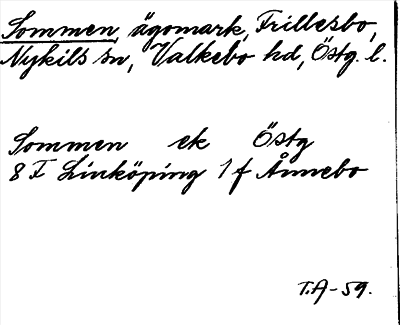 Sommen, ägomark, Frillesbo,
Nykils sn, Valkebo hd, Östg. l.
Sommen ek Östg
8 F Linköping 1 f Ånnebo
T.A-59.